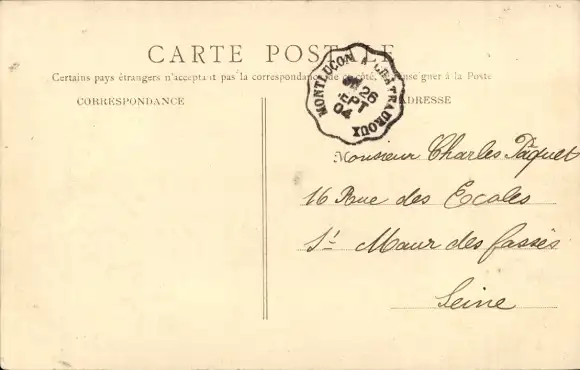 CARTE POSTALE
Certains pays étrangers n'acceptant pas la correspondance de ce côté, se renseigner à la Poste
CORRESPONDANCE
ADRESSE
MONTLUÇON A CHATEAUROUX
26
SEPT
04
Monsieur Charles Pâquet
16 Rue des Ecoles
St Maur des fassés
Seine